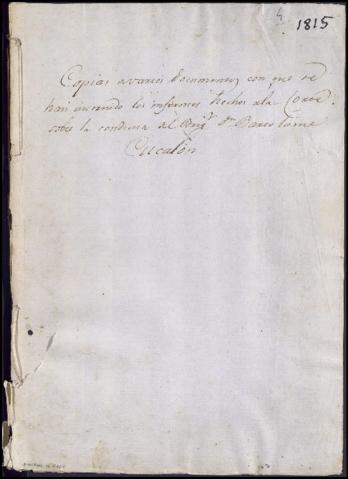 1815
Copias a varios documentos con que se
han the informes hechos a la Corte
sobre la conducta del Brigr. Dn. Bartolome
Cucalón